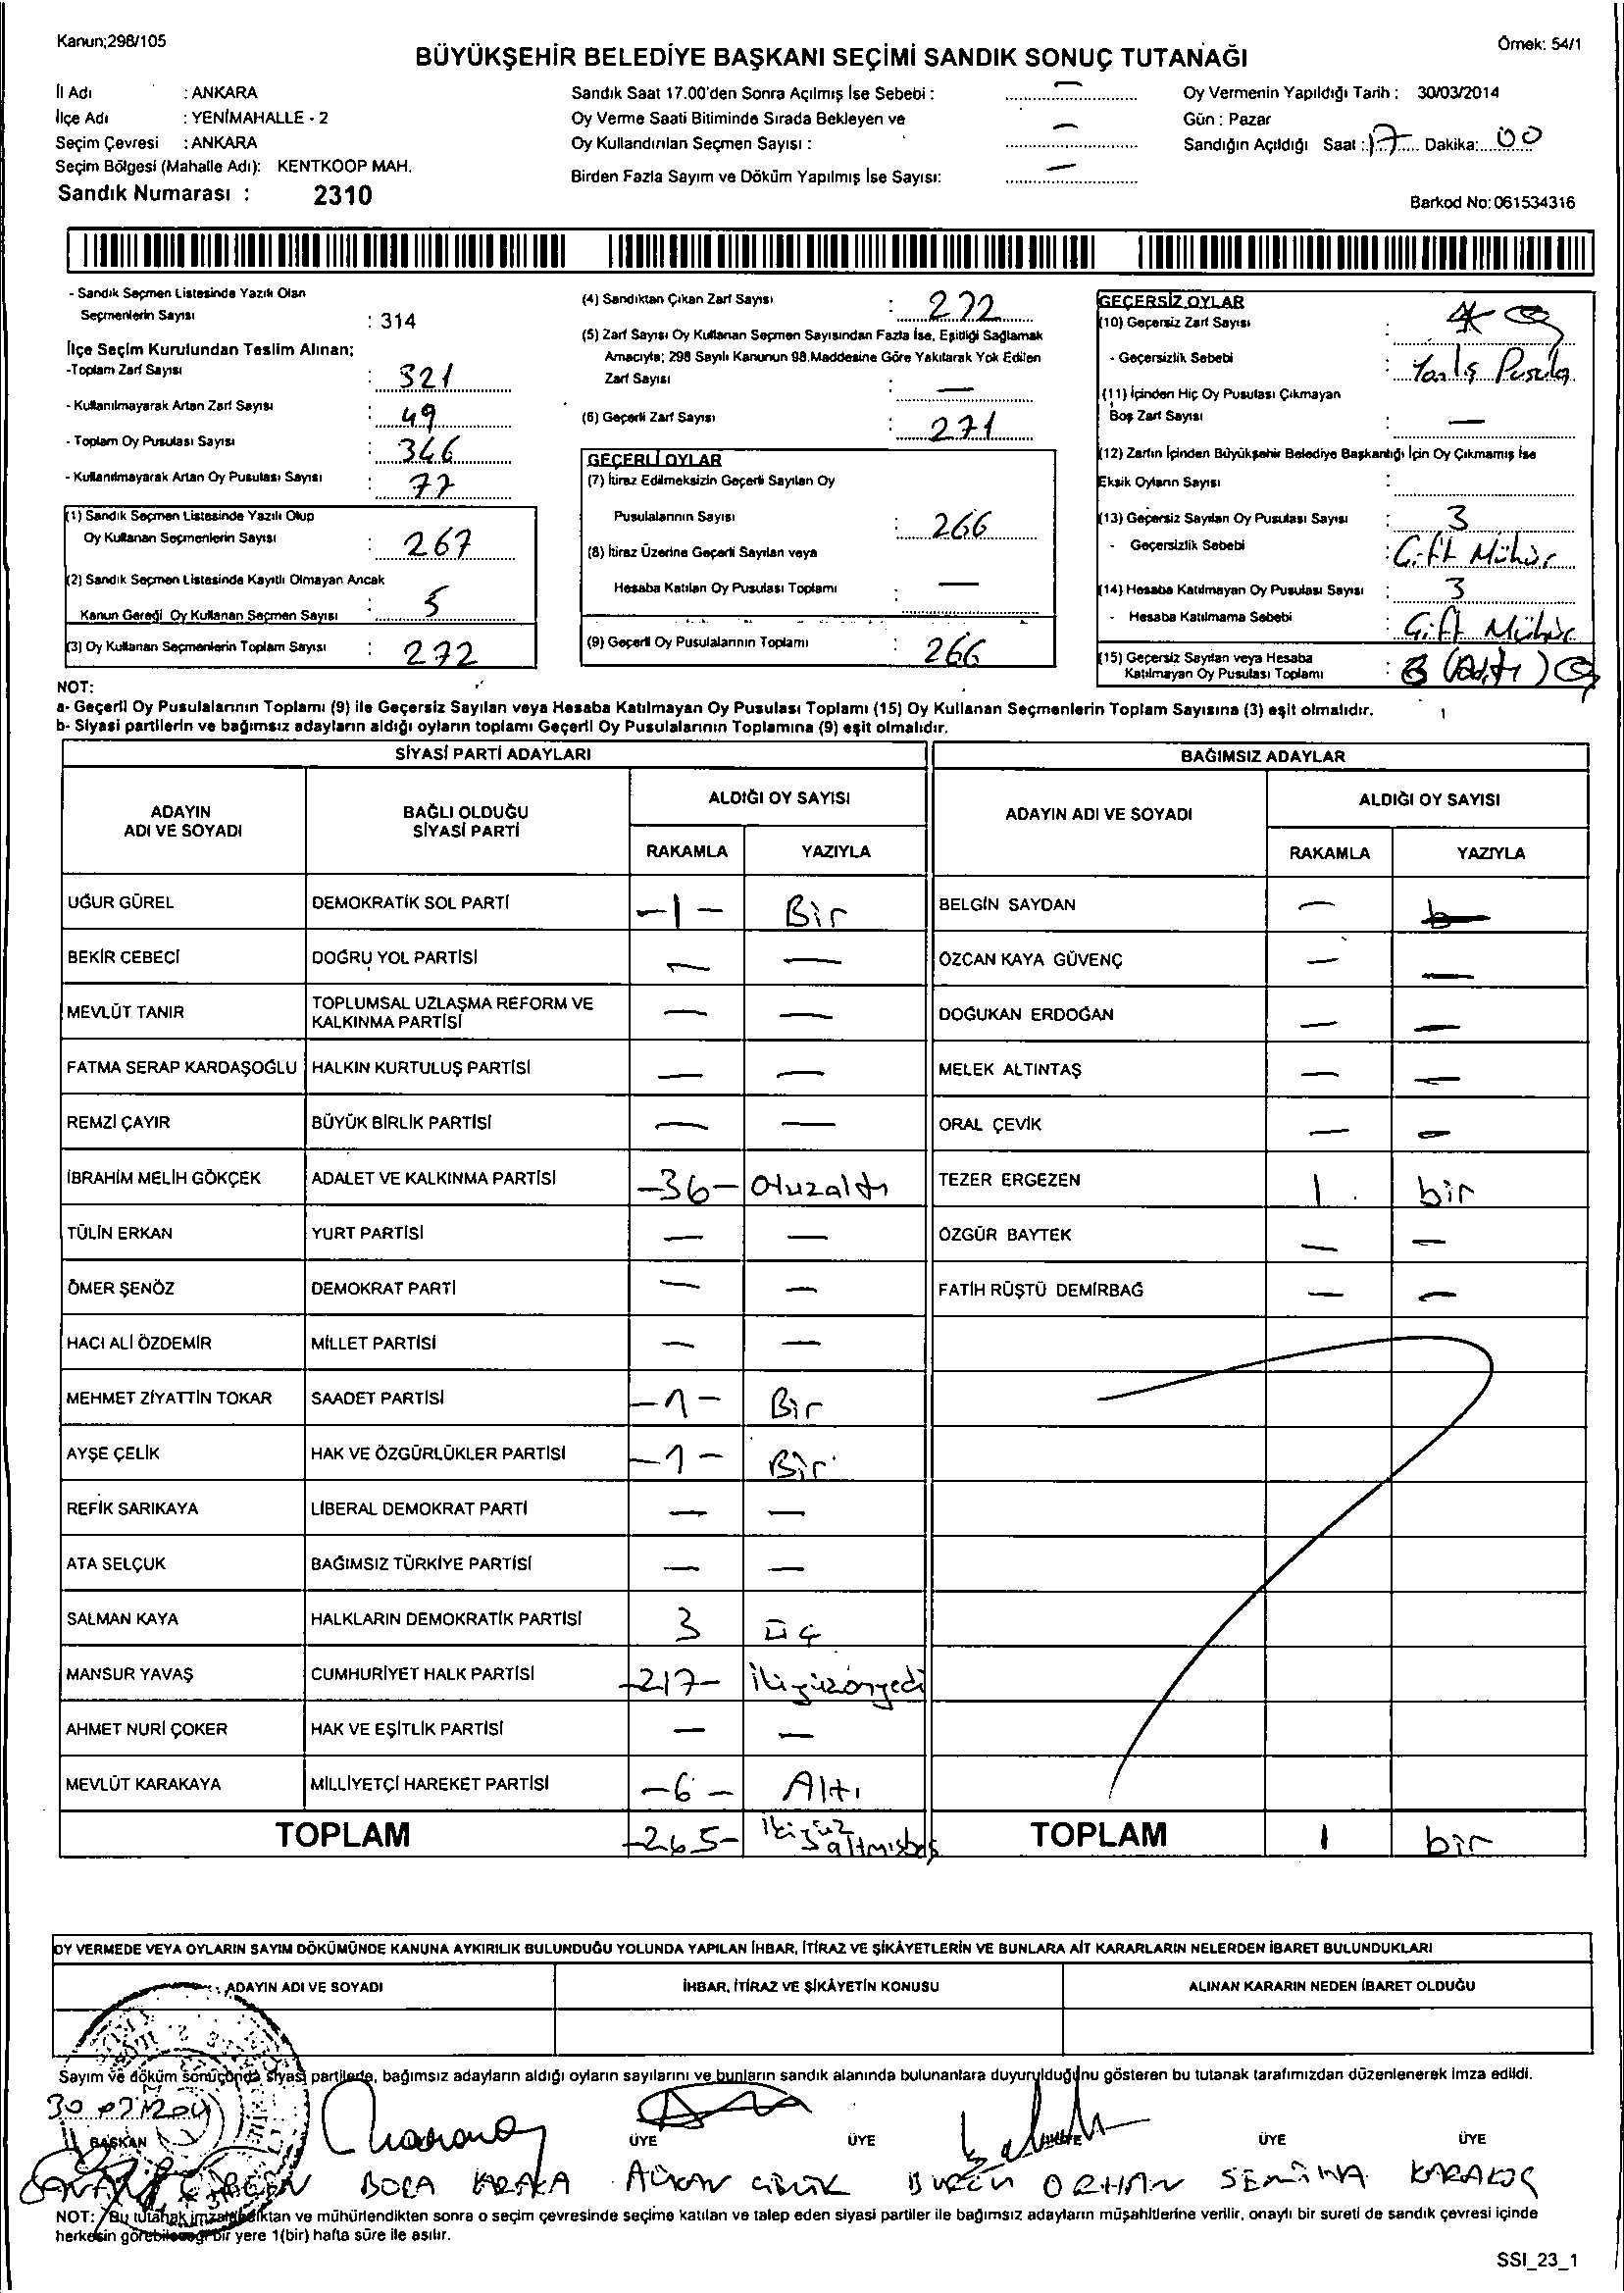 Kanun;298/105
Örnek: 54/1
BÜYÜKŞEHİR BELEDİYE BAŞKANI SEÇİMİ SANDIK SONUÇ TUTANAĞI
İl Adı : ANKARA
İlçe Adı : YENİMAHALLE - 2
Seçim Çevresi : ANKARA
Seçim Bölgesi (Mahalle Adı): KENTKOOP MAH.
Sandık Numarası : 2310
Sandık Saat 17.00'den Sonra Açılmış İse Sebebi : —
Oy Verme Saati Bitiminde Sırada Bekleyen ve
Oy Kullandırılan Seçmen Sayısı : —
Birden Fazla Sayım ve Döküm Yapılmış İse Sayısı: —
Oy Vermenin Yapıldığı Tarih : 30/03/2014
Gün : Pazar
Sandığın Açıldığı Saat : 17 Dakika: 00
Barkod No: 061534316
- Sandık Seçmen Listesinde Yazılı Olan
Seçmenlerin Sayısı : 314
İlçe Seçim Kurulundan Teslim Alınan;
-Toplam Zarf Sayısı : 321
- Kullanılmayarak Artan Zarf Sayısı : 49
- Toplam Oy Pusulası Sayısı : 346
- Kullanılmayarak Artan Oy Pusulası Sayısı : 77
(1) Sandık Seçmen Listesinde Yazılı Olup
Oy Kullanan Seçmenlerin Sayısı : 267
(2) Sandık Seçmen Listesinde Kayıtlı Olmayan Ancak
Kanun Gereği Oy Kullanan Seçmen Sayısı : 5
(3) Oy Kullanan Seçmenlerin Toplam Sayısı : 272
(4) Sandıktan Çıkan Zarf Sayısı : 272
(5) Zarf Sayısı Oy Kullanan Seçmen Sayısından Fazla İse, Eşitliği Sağlamak
Amacıyla; 298 Sayılı Kanunun 98.Maddesine Göre Yakılarak Yok Edilen
Zarf Sayısı : —
(6) Geçerli Zarf Sayısı : 271
GEÇERLİ OYLAR
(7) İtiraz Edilmeksizin Geçerli Sayılan Oy
Pusulalarının Sayısı : 266
(8) İtiraz Üzerine Geçerli Sayılan veya
Hesaba Katılan Oy Pusulası Toplamı : —
(9) Geçerli Oy Pusulalarının Toplamı : 266
GEÇERSİZ OYLAR
(10) Geçersiz Zarf Sayısı :
- Geçersizlik Sebebi : Yanlış Pusula
(11) İçinden Hiç Oy Pusulası Çıkmayan
Boş Zarf Sayısı : —
(12) Zarfın İçinden Büyükşehir Belediye Başkanlığı İçin Oy Çıkmamış İse
Eksik Oyların Sayısı :
(13) Geçersiz Sayılan Oy Pusulası Sayısı : 3
- Geçersizlik Sebebi : Çift Mühür
(14) Hesaba Katılmayan Oy Pusulası Sayısı : 3
- Hesaba Katılmama Sebebi : Çift Mühür
(15) Geçersiz Sayılan veya Hesaba
Katılmayan Oy Pusulası Toplamı : 6 (Altı)
NOT:
a- Geçerli Oy Pusulalarının Toplamı (9) ile Geçersiz Sayılan veya Hesaba Katılmayan Oy Pusulası Toplamı (15) Oy Kullanan Seçmenlerin Toplam Sayısına (3) eşit olmalıdır.
b- Siyasi partilerin ve bağımsız adayların aldığı oyların toplamı Geçerli Oy Pusulalarının Toplamına (9) eşit olmalıdır.
SİYASİ PARTİ ADAYLARI
ADAYIN ADI VE SOYADI BAĞLI OLDUĞU SİYASİ PARTİ ALDIĞI OY SAYISI
RAKAMLA YAZIYLA
UĞUR GÜREL DEMOKRATİK SOL PARTİ -1- Bir
BEKİR CEBECİ DOĞRU YOL PARTİSİ — —
MEVLÜT TANIR TOPLUMSAL UZLAŞMA REFORM VE KALKINMA PARTİSİ — —
FATMA SERAP KARDAŞOĞLU HALKIN KURTULUŞ PARTİSİ — —
REMZİ ÇAYIR BÜYÜK BİRLİK PARTİSİ — —
İBRAHİM MELİH GÖKÇEK ADALET VE KALKINMA PARTİSİ -36- Otuzaltı
TÜLİN ERKAN YURT PARTİSİ — —
ÖMER ŞENÖZ DEMOKRAT PARTİ — —
HACI ALİ ÖZDEMİR MİLLET PARTİSİ — —
MEHMET ZİYATTİN TOKAR SAADET PARTİSİ -1- Bir
AYŞE ÇELİK HAK VE ÖZGÜRLÜKLER PARTİSİ -1- Bir
REFİK SARIKAYA LİBERAL DEMOKRAT PARTİ — —
ATA SELÇUK BAĞIMSIZ TÜRKİYE PARTİSİ — —
SALMAN KAYA HALKLARIN DEMOKRATİK PARTİSİ 3 üç
MANSUR YAVAŞ CUMHURİYET HALK PARTİSİ -217- ikiyüzonyedi
AHMET NURİ ÇOKER HAK VE EŞİTLİK PARTİSİ — —
MEVLÜT KARAKAYA MİLLİYETÇİ HAREKET PARTİSİ -6- Altı
TOPLAM -265- ikiyüz altmışbeş
BAĞIMSIZ ADAYLAR
ADAYIN ADI VE SOYADI ALDIĞI OY SAYISI
RAKAMLA YAZIYLA
BELGİN SAYDAN — —
ÖZCAN KAYA GÜVENÇ — —
DOĞUKAN ERDOĞAN — —
MELEK ALTINTAŞ — —
ORAL ÇEVİK — —
TEZER ERGEZEN 1 bir
ÖZGÜR BAYTEK — —
FATİH RÜŞTÜ DEMİRBAĞ — —
TOPLAM 1 bir
OY VERMEDE VEYA OYLARIN SAYIM DÖKÜMÜNDE KANUNA AYKIRILIK BULUNDUĞU YOLUNDA YAPILAN İHBAR, İTİRAZ VE ŞİKÂYETLERİN VE BUNLARA AİT KARARLARIN NELERDEN İBARET BULUNDUKLARI
ADAYIN ADI VE SOYADI İHBAR, İTİRAZ VE ŞİKÂYETİN KONUSU ALINAN KARARIN NEDEN İBARET OLDUĞU
Sayım ve döküm sonucunda siyasi partilerle, bağımsız adayların aldığı oyların sayılarını ve bunların sandık alanında bulunanlara duyurulduğunu gösteren bu tutanak tarafımızdan düzenlenerek imza edildi.
BAŞKAN ÜYE ÜYE ÜYE ÜYE
BORA BURCU ORHAN SEMİHA KARAKOÇ
NOT: Bu tutanak imzalandıktan ve mühürlendikten sonra o seçim çevresinde seçime katılan ve talep eden siyasi partiler ile bağımsız adayların müşahitlerine verilir, onaylı bir sureti de sandık çevresi içinde
herkesin görebileceği bir yere 1(bir) hafta süre ile asılır.
SSI_23_1